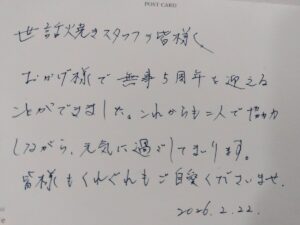 POST CARD
世話焼きスタッフの皆様へ
おかげ様で無事5周年を迎える
ことができました。これからも二人で協力
しながら、元気に過ごしてまいります。
皆様もくれぐれもご自愛くださいませ。
2026.2.22.